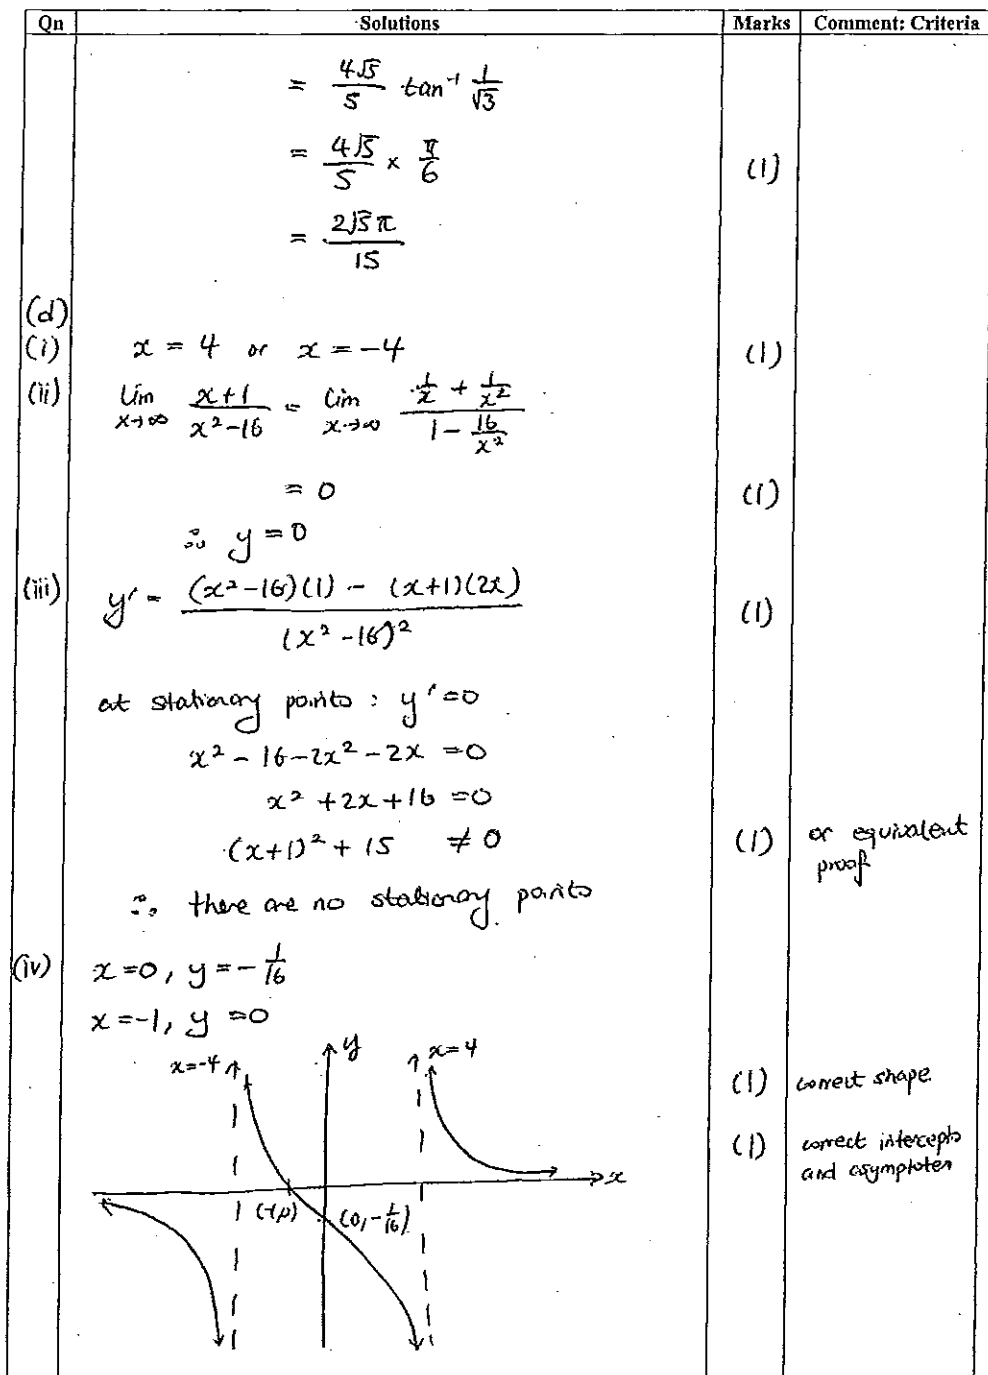 Qn Solutions Marks Comment: Criteria
= 4√5/5 tan⁻¹ 1/√3
= 4√5/5 × π/6 (1)
= 2√5π/15
(d)
(i) x = 4 or x = -4 (1)
(ii) lim x→∞ (x+1)/(x²-16) = lim x→∞ (1/x + 1/x²)/(1 - 16/x²)
= 0 (1)
∴ y = 0
(iii) y' = ((x²-16)(1) - (x+1)(2x))/(x²-16)² (1)
at stationary points : y' = 0
x² - 16 - 2x² - 2x = 0
x² + 2x + 16 = 0
(x+1)² + 15 ≠ 0 (1) or equivalent
proof
∴ there are no stationary points
(iv) x = 0, y = -1/16
x = -1, y = 0
x=-4 y x=4
(1) correct shape.
(1) correct intercepts
and asymptotes
x
(-1,0) (0, -1/16)